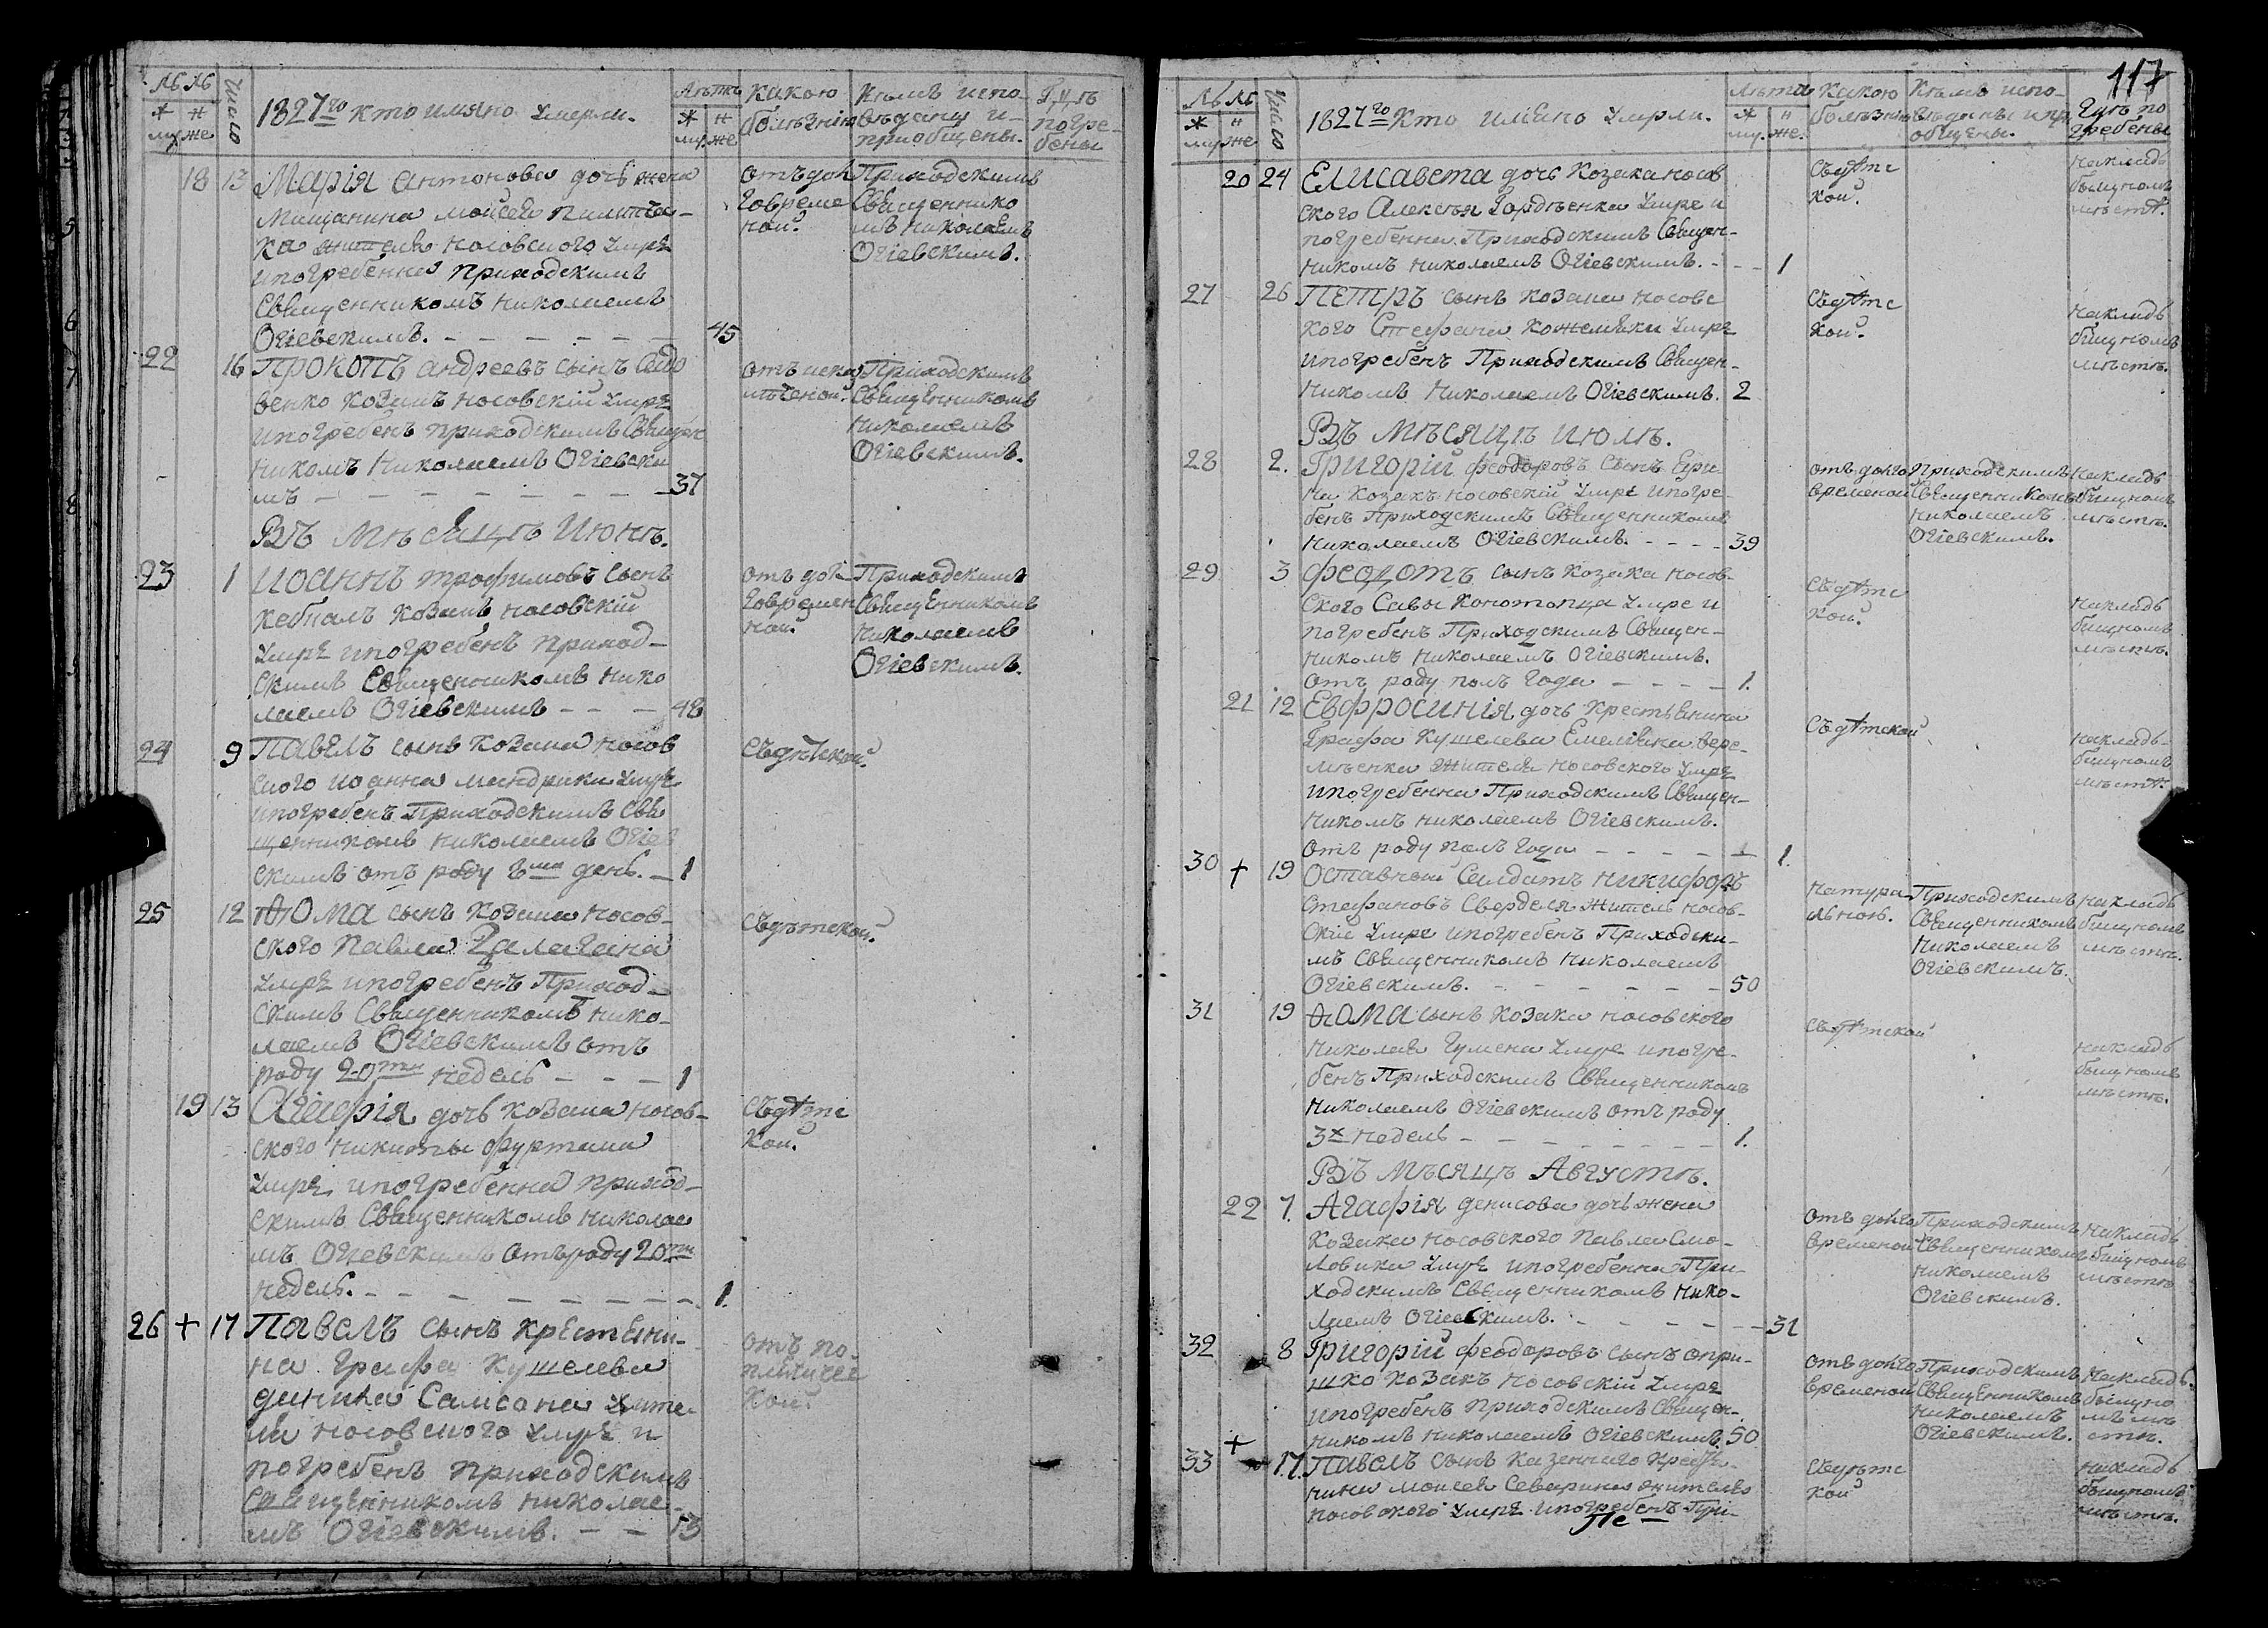 1827го кто имяно умерли.
Число
муж же
Лѣтъ
какою болѣзнію
Кѣмъ исповѣданы и приобщены.
Гдѣ погребены
18 13 Марія антонова дочь жена
мищанина мойсея
жителя носовского умре
и погребенна приходскимъ
Священникомъ николаемъ
Огіевскимъ. 45
отъ долговремѣной
Приходскимъ
Священникомъ николаемъ
Огіевскимъ.
22 16 Прокопъ андреевъ сынъ
козакъ носовскій умре
и погребенъ приходскимъ Священ
никомъ Николаемъ Огіевски
мъ 37
Приходскимъ
Священникомъ
николаемъ
Огіевскимъ.
Въ мѣсяцѣ Июнѣ.
23 1 Иоаннъ трофимовъ сынъ
козакъ носовскій
умре и погребенъ приход-
скимъ Священникомъ нико
лаемъ Огіевскимъ 48
Приходскимъ
Священникомъ
николаемъ
Огіевскимъ.
24 9 Павелъ сынъ козака носов
ского иоанна мандрики умре
и погребенъ Приходскимъ Свя
щенникомъ николаемъ Огіев
скимъ отъ роду день. 1
Съдѣтской.
25 12 Ѳома сынъ козака носов-
ского павла Галагана
умре и погребенъ Приход-
скимъ Священникомъ нико-
лаемъ Огіевскимъ отъ
роду 20ти недель 1
Съдѣтской.
19 13 Агафія дочь козака носов-
ского никиты фуртата
умре и погребенна приход-
скимъ Священникомъ николае
мъ Огіевскимъ отъ роду 20ти
недель. 1.
Съдѣтс
кой.
26 + 17 Павелъ сынъ крестяни-
на графа Кушелева
Самсона жите-
ля носовского умре и
погребенъ приходскимъ
Священникомъ николае-
мъ Огіевскимъ. 53
117
1827го Кто имяно умрли.
Число
муж же
Лѣта
Какою болѣзнію
Кѣмъ исповѣданы и приобщены.
Гдѣ погребены
20 24 Елисавета дочь Козака носов
ского Алексѣя Гордѣенка умре и
погребенна Приходскимъ Священ-
никомъ николаемъ Огіевскимъ. 1
Съдѣтс
кой.
накладбищномъ
мѣстѣ.
27 26 Петръ сынъ козака носовс
кого Стефана кожемяки умре
и погребенъ Приходскимъ Священ-
никомъ Николаемъ Огіевскимъ. 2
Съдѣтс
кой.
накладбищномъ
мѣстѣ.
Въ мѣсяцѣ июлѣ.
28 2. Григорій феодоровъ сынъ
козакъ носовскій умре и погре-
бенъ Приходскимъ Священникомъ
николаемъ Огіевскимъ. 39
отъ долго
временой
Приходскимъ
Священникомъ
николаемъ
Огіевскимъ.
накладбищномъ
мѣстѣ.
29 3 Федотъ сынъ козака носов-
ского Савы Конотопца умре и
погребенъ Приходскимъ Священ-
никомъ николаемъ Огіевскимъ.
отъ роду полъ года 1.
Съдѣтс
кой.
накладбищномъ
мѣстѣ.
21 12 Евфросинія дочь крестьянина
Графа Кушелева Емеліяна Вере-
мѣенка жителя носовского умре
и погребенна Приходскимъ Священ-
никомъ николаемъ Огіевскимъ.
отъ роду полъ года 1.
Съдѣтской
накладбищномъ
мѣстѣ.
30 + 19 Оставной Салдатъ никифоръ
стефановъ Сверделя житель носов-
скій умре и погребенъ Приходски-
мъ Священникомъ николаемъ
Огіевскимъ. 50
натура
льною.
Приходскимъ
Священникомъ
николаемъ
Огіевскимъ.
накладбищномъ
мѣстѣ.
31 19 Ѳома сынъ козака носовского
николая Гумена умре и погре-
бенъ Приходскимъ Священникомъ
николаемъ Огіевскимъ отъ роду
3х недель 1.
Съдѣтской
накладбищномъ
мѣстѣ.
Въ мѣсяцѣ Августѣ.
22 7. Агафія денисова дочь жена
козака носовского павла Смо-
ловика умре и погребенна При-
ходскимъ Священникомъ нико-
лаемъ Огіевскимъ. 31
отъ долго
временой
Приходскимъ
Священникомъ
николаемъ
Огіевскимъ.
накладбищномъ
мѣстѣ
32 8 Григорій феодоровъ сынъ опри-
шко козакъ носовскій умре
и погребенъ приходскимъ Священ-
никомъ николаемъ Огіевскимъ. 50
отъ долго
временой
Приходскимъ
Священникомъ
николаемъ
Огіевскимъ.
накладбищно
мъ мѣ
стѣ.
33 + 17. Павелъ сынъ казенного крестья-
нина моисея Северина жителя
носовского умре и погребенъ При-
Съдѣтс
кой
накладбищномъ
мѣстѣ.